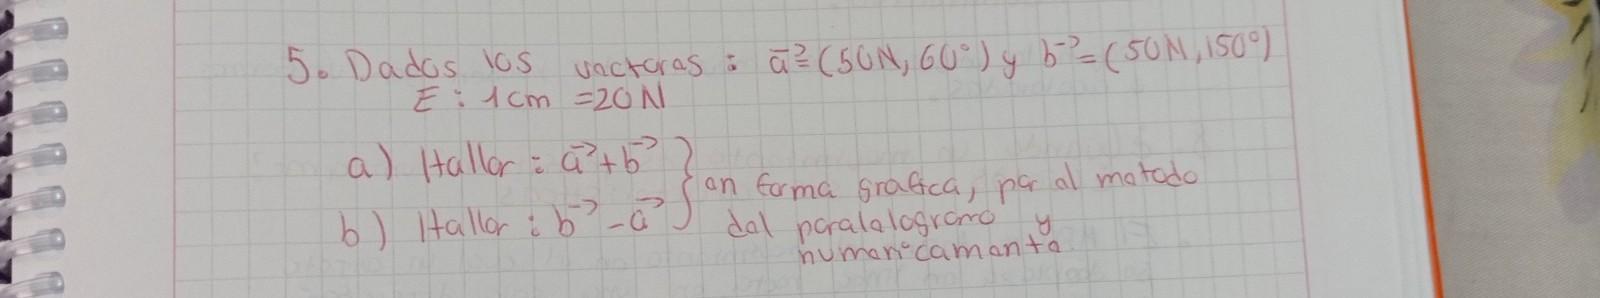 5. Dados los vectores : a⃗ = (50N, 60°) y b⃗ = (50N, 150°)
E : 1cm = 20N
a) Hallar : a⃗ + b⃗
b) Hallar : b⃗ - a⃗
en forma grafica, por el metodo
del paralelogramo y
numericamente